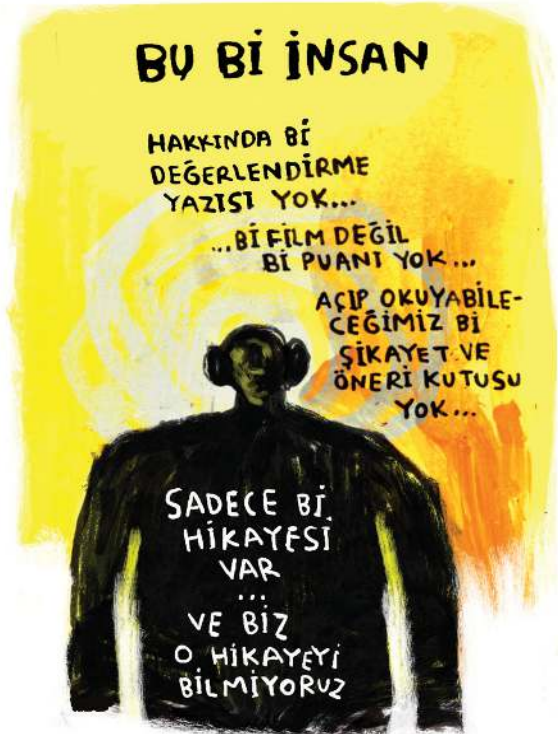 BU Bİ İNSAN
HAKKINDA Bİ
DEĞERLENDİRME
YAZISI YOK...
...Bİ FİLM DEĞİL
Bİ PUANI YOK...
AÇIP OKUYABİLE-
CEĞİMİZ Bİ
ŞİKAYET VE
ÖNERİ KUTUSU
YOK...
SADECE Bİ
HİKAYESİ
VAR
...
VE BİZ
O HİKAYEYİ
BİLMİYORUZ